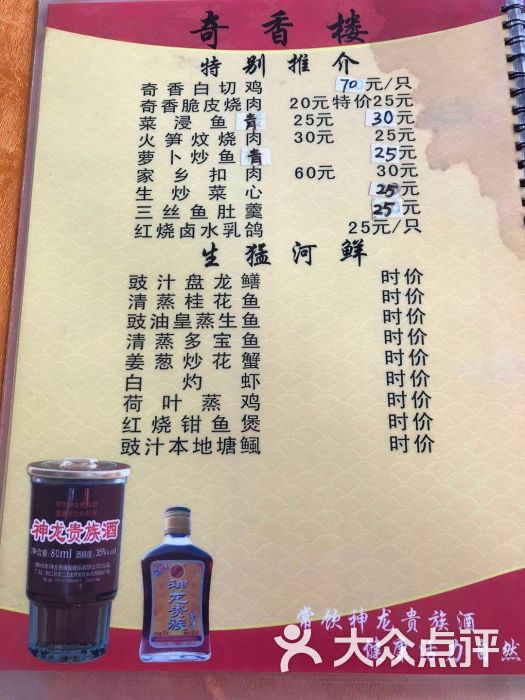 奇香楼
特别推介
奇香白切鸡 70元/只
奇香脆皮烧肉 20元特价25元
菜浸鱼青 25元 30元
火笋炆烧肉 30元 25元
萝卜炒鱼青 25元
家乡扣肉 60元 30元
生炒菜心 25元
三丝鱼肚羹 25元
红烧卤水乳鸽 25元/只
生猛河鲜
豉汁盘龙鳝 时价
清蒸桂花鱼 时价
豉油皇蒸生鱼 时价
清蒸多宝鱼 时价
姜葱炒花蟹 时价
白灼虾 时价
荷叶蒸鸡 时价
红烧钳鱼煲 时价
豉汁本地塘鲺 时价
神龙贵族酒
净含量:80ml 酒精度:35%vol
神龙贵族
常饮神龙贵族酒
健康
大众点评